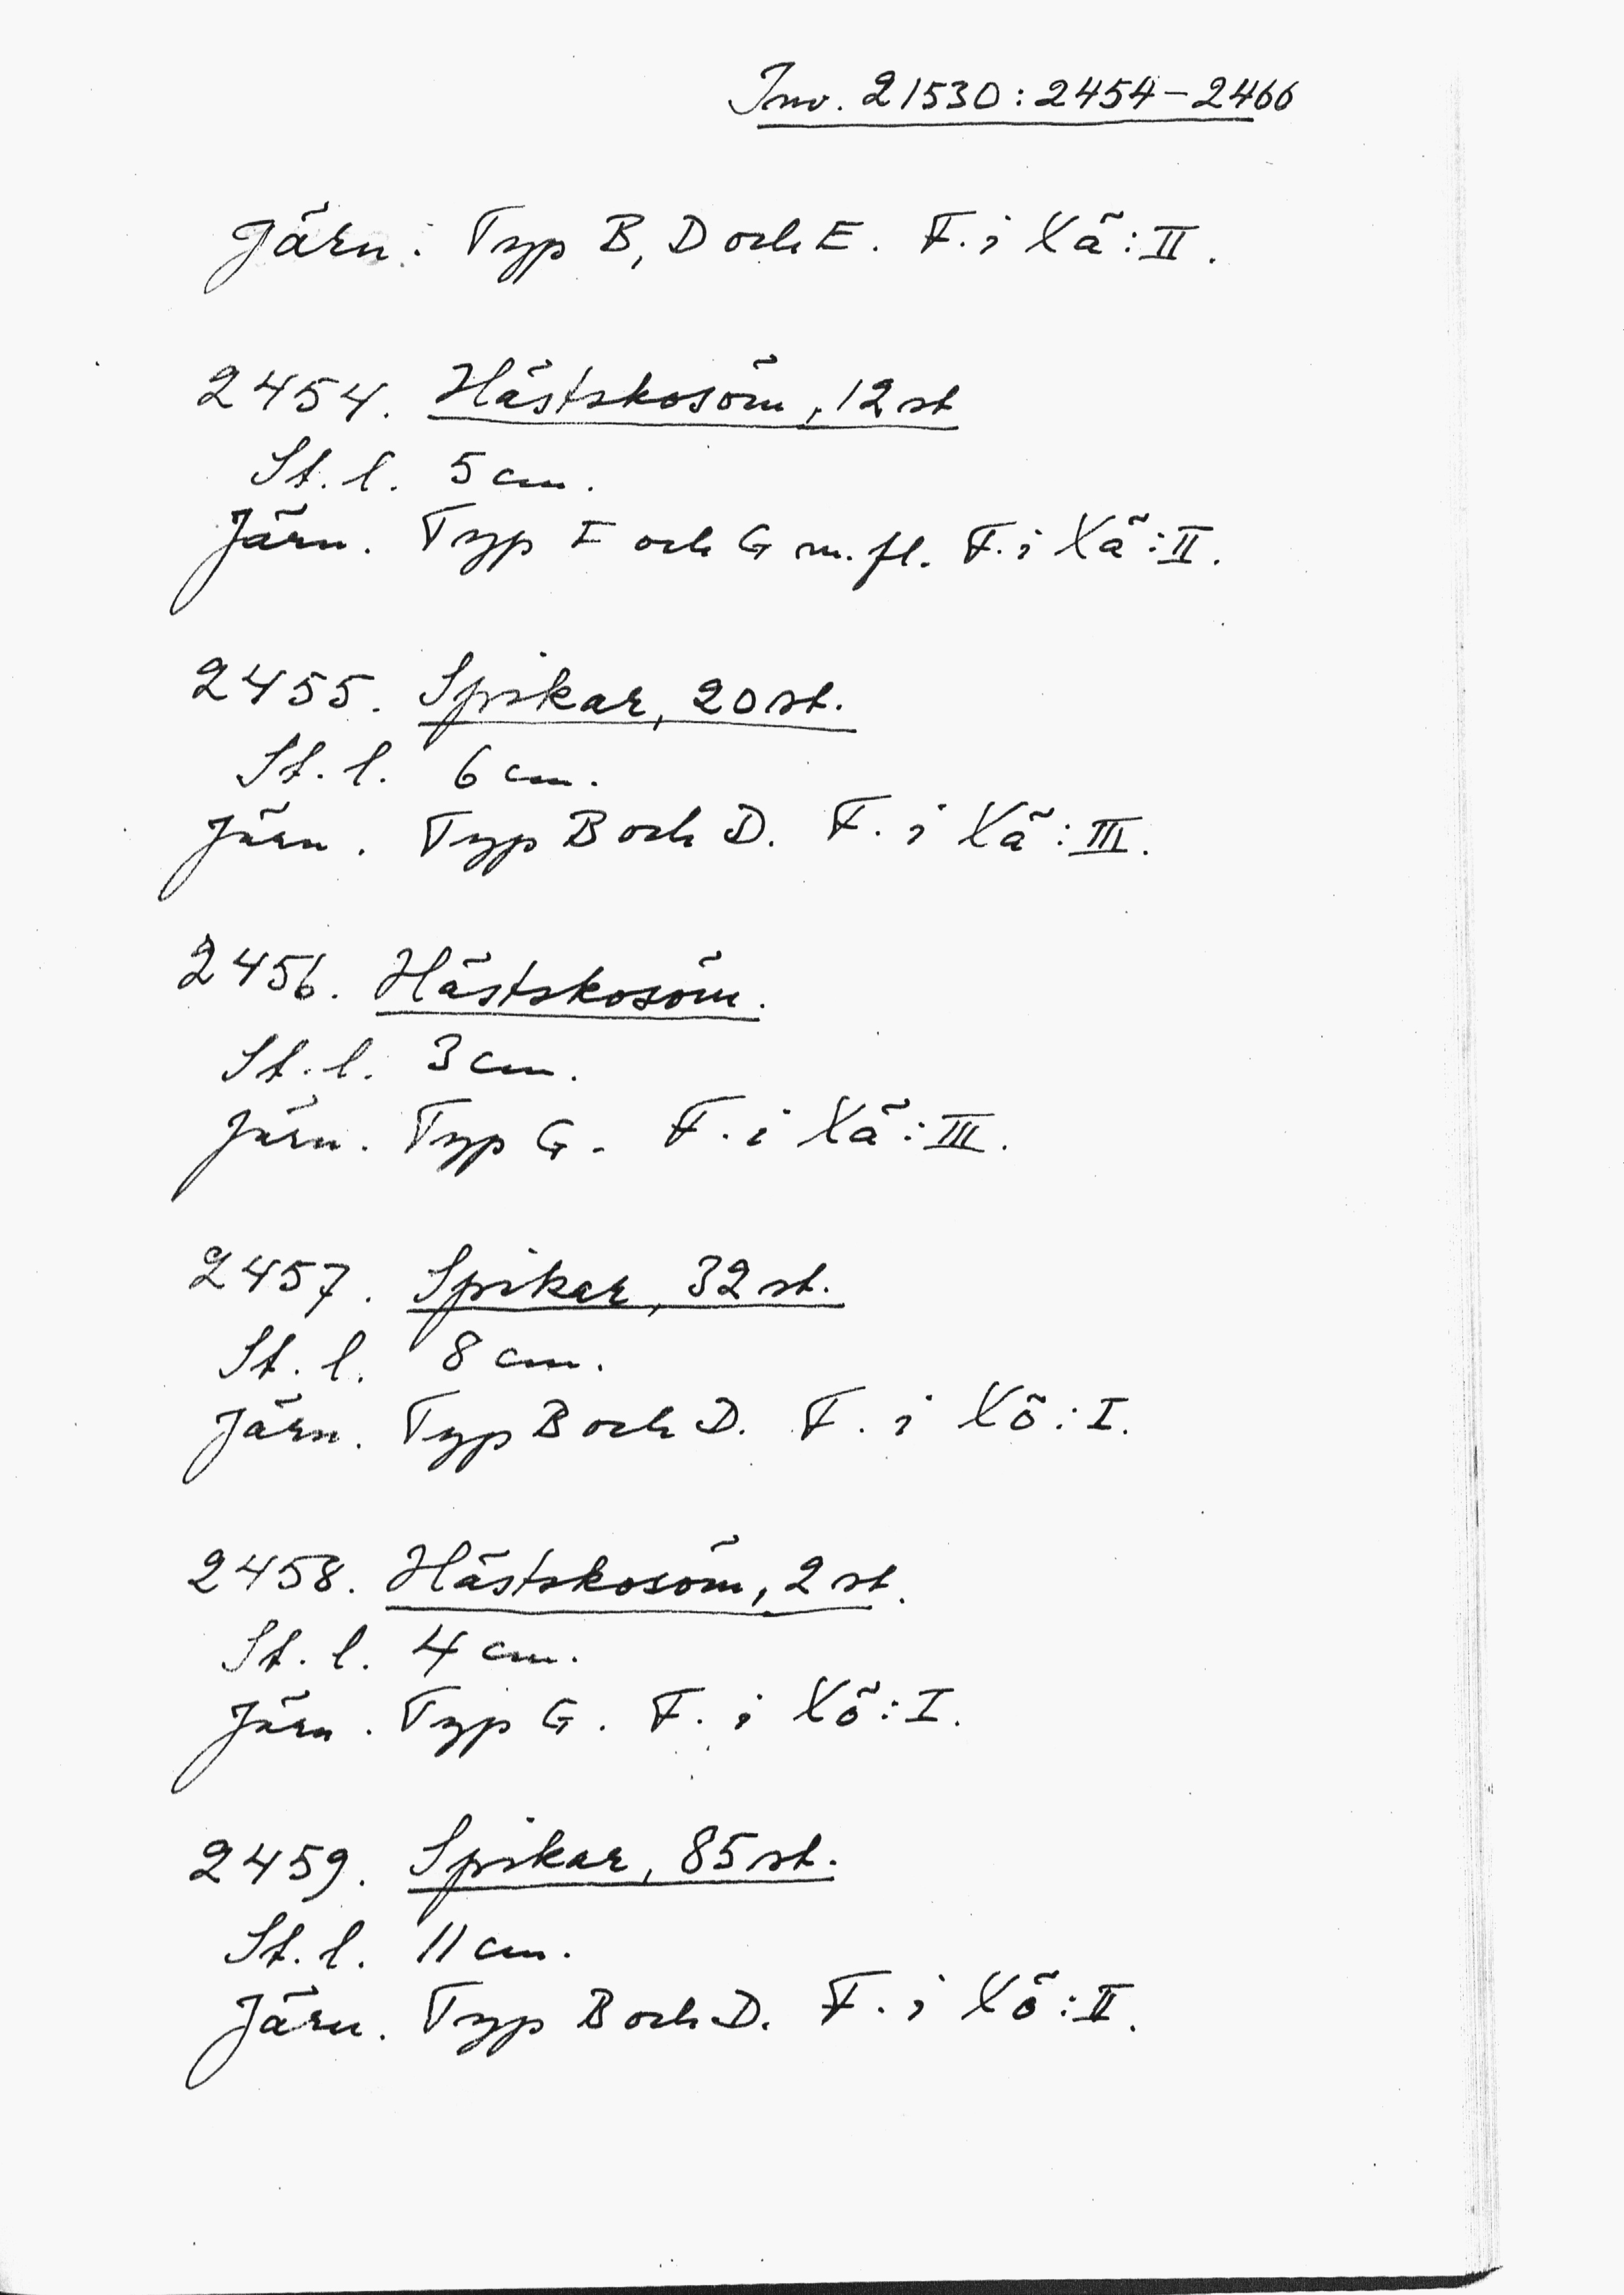 Inv. 21530:2454-2466
Järn. Typ B, D och E. F. i Xä:II.
2454. Hästskosöm, 12 st
St. l. 5 cm.
Järn. Typ F och G m. fl. F. i Xä:II.
2455. Spikar, 20 st.
St. l. 6 cm.
Järn. Typ B och D. F. i Xä:III.
2456. Hästskosöm.
St. l. 3 cm.
Järn. Typ G. F. i Xä:III.
2457. Spikar, 32 st.
St. l. 8 cm.
Järn. Typ B och D. F. i Xö:I.
2458. Hästskosöm, 2 st.
St. l. 4 cm.
Järn. Typ G. F. i Xö:I.
2459. Spikar, 85 st.
St. l. 11 cm.
Järn. Typ B och D. F. i Xö:II.